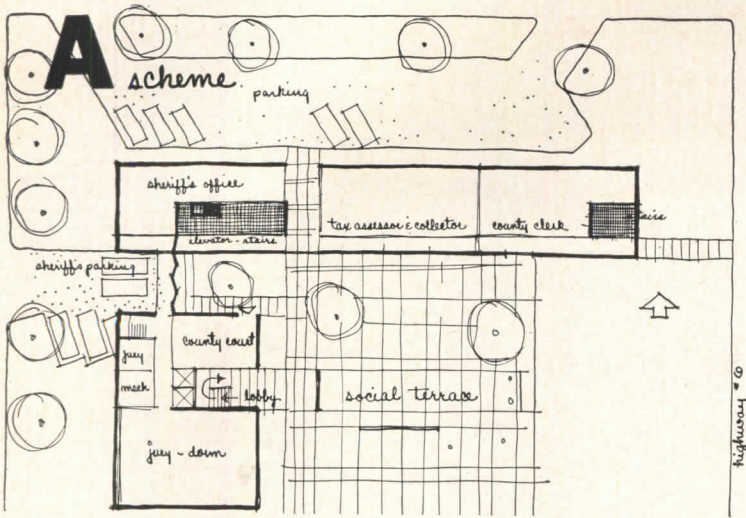 A scheme
parking
sheriff's office
tax assessor & collector
county clerk
stairs
elevator - stairs
sheriff's parking
county court
jury
mech
lobby
social terrace
jury - dorm
highway #6